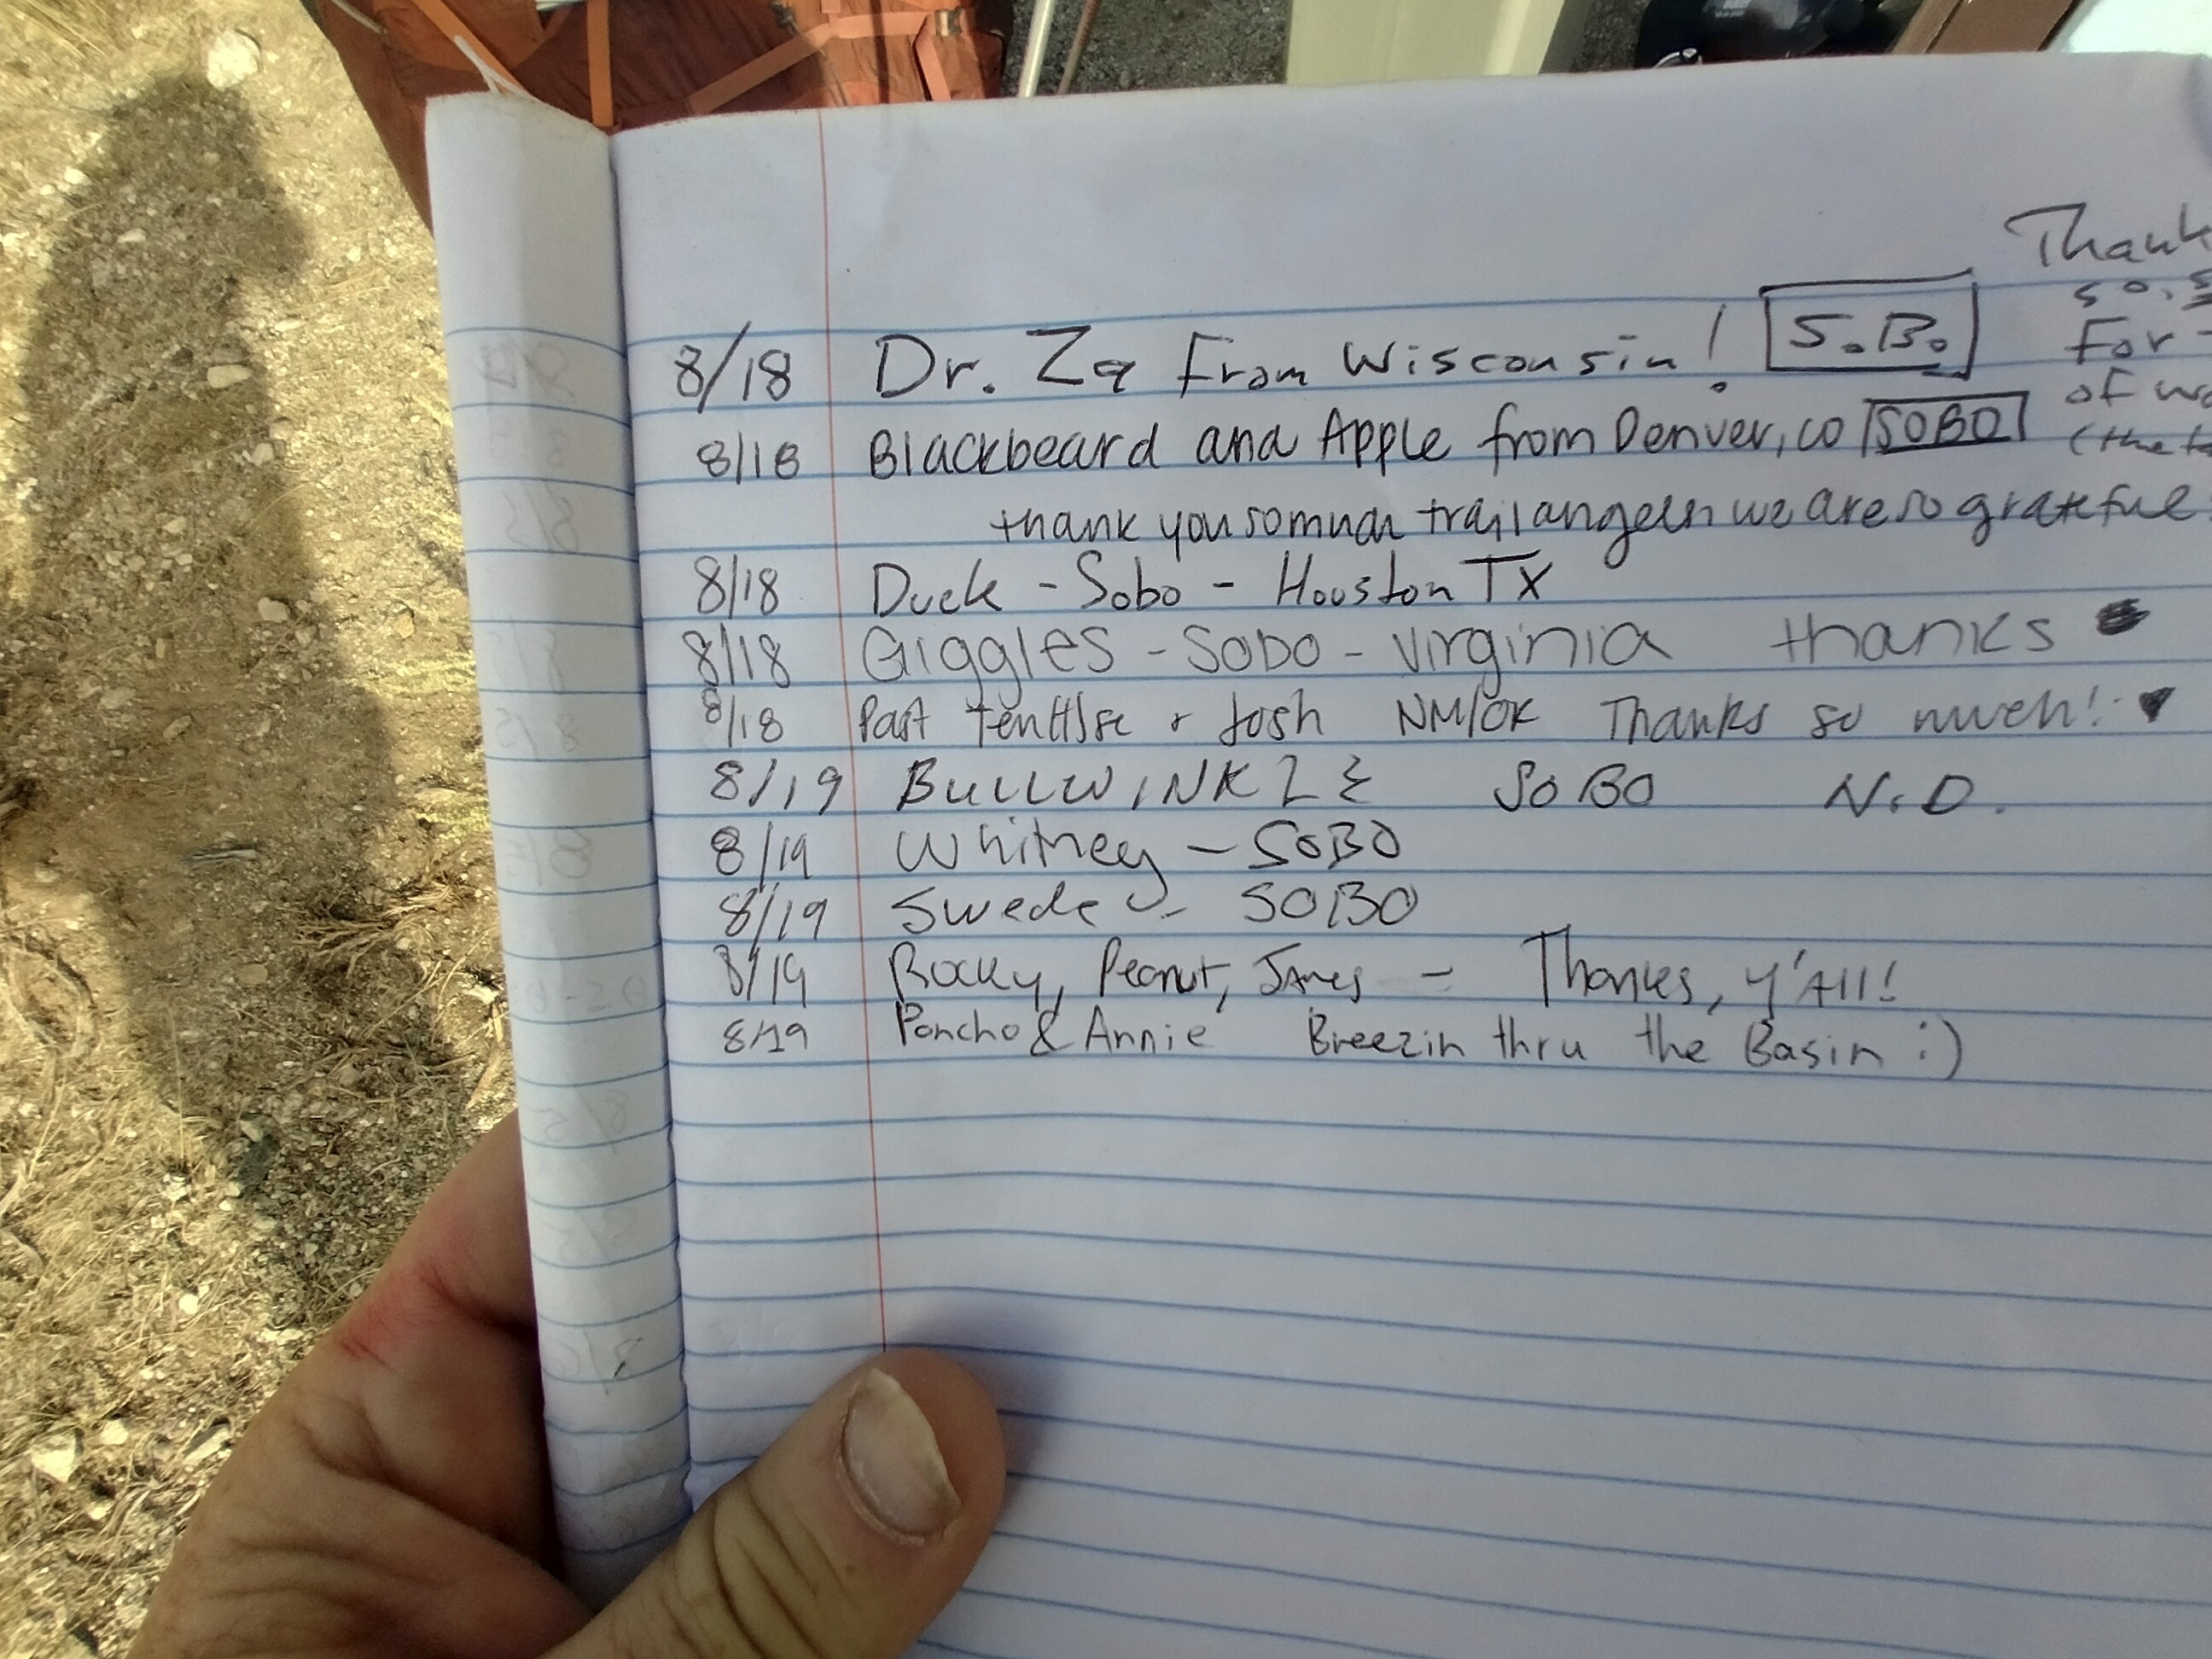 8/18 Dr. Za From Wisconsin! S.B. Thank
so, s
For
of wa
8/18 Blackbeard and Apple from Denver, CO SOBO (the
thank you so much trail angels we are so grateful
8/18 Duck - Sobo - Houston TX
8/18 Giggles - SOBO - Virginia thanks
8/18 Past & Josh NM/OK Thanks so much!
8/19 BULLWINKLE SOBO N.D.
8/19 Whitney - SOBO
8/19 Swede - SOBO
8/19 Rocky, Peanut, James - Thanks, Y'All!
8/19 Poncho & Annie Breezin thru the Basin :)